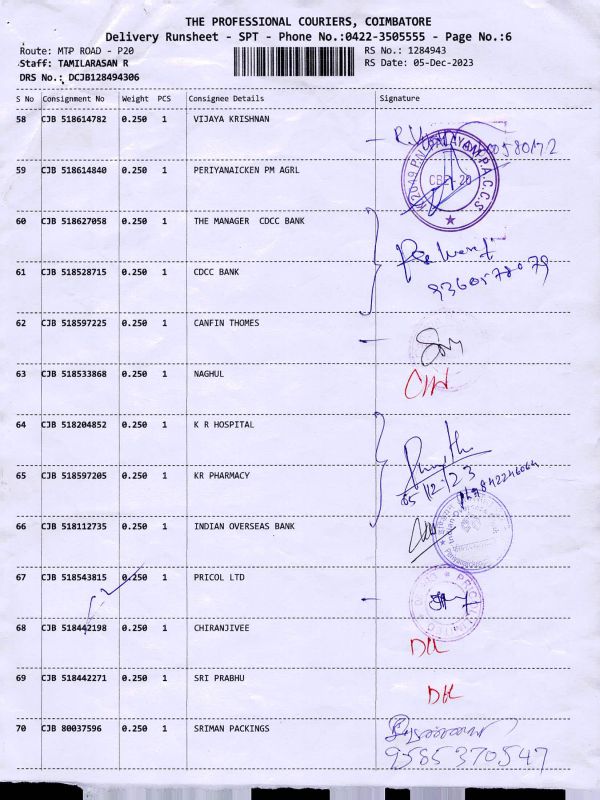 THE PROFESSIONAL COURIERS, COIMBATORE
Delivery Runsheet - SPT - Phone No.:0422-3505555 - Page No.:6
Route: MTP ROAD - P20
RS No.: 1284943
Staff: TAMILARASAN R
RS Date: 05-Dec-2023
DRS No.: DCJB128494306
S No Consignment No Weight PCS Consignee Details Signature
58 CJB 518614782 0.250 1 VIJAYA KRISHNAN
59 CJB 518614840 0.250 1 PERIYANAICKEN PM AGRL
60 CJB 518627058 0.250 1 THE MANAGER CDCC BANK
61 CJB 518528715 0.250 1 CDCC BANK
9360578079
62 CJB 518597225 0.250 1 CANFIN THOMES
63 CJB 518533868 0.250 1 NAGHUL
64 CJB 518204852 0.250 1 K R HOSPITAL
65 CJB 518597205 0.250 1 KR PHARMACY
05/12/23
66 CJB 518112735 0.250 1 INDIAN OVERSEAS BANK
67 CJB 518543815 0.250 1 PRICOL LTD
68 CJB 518442198 0.250 1 CHIRANJIVEE
DL
69 CJB 518442271 0.250 1 SRI PRABHU
DL
70 CJB 80037596 0.250 1 SRIMAN PACKINGS
9585370547